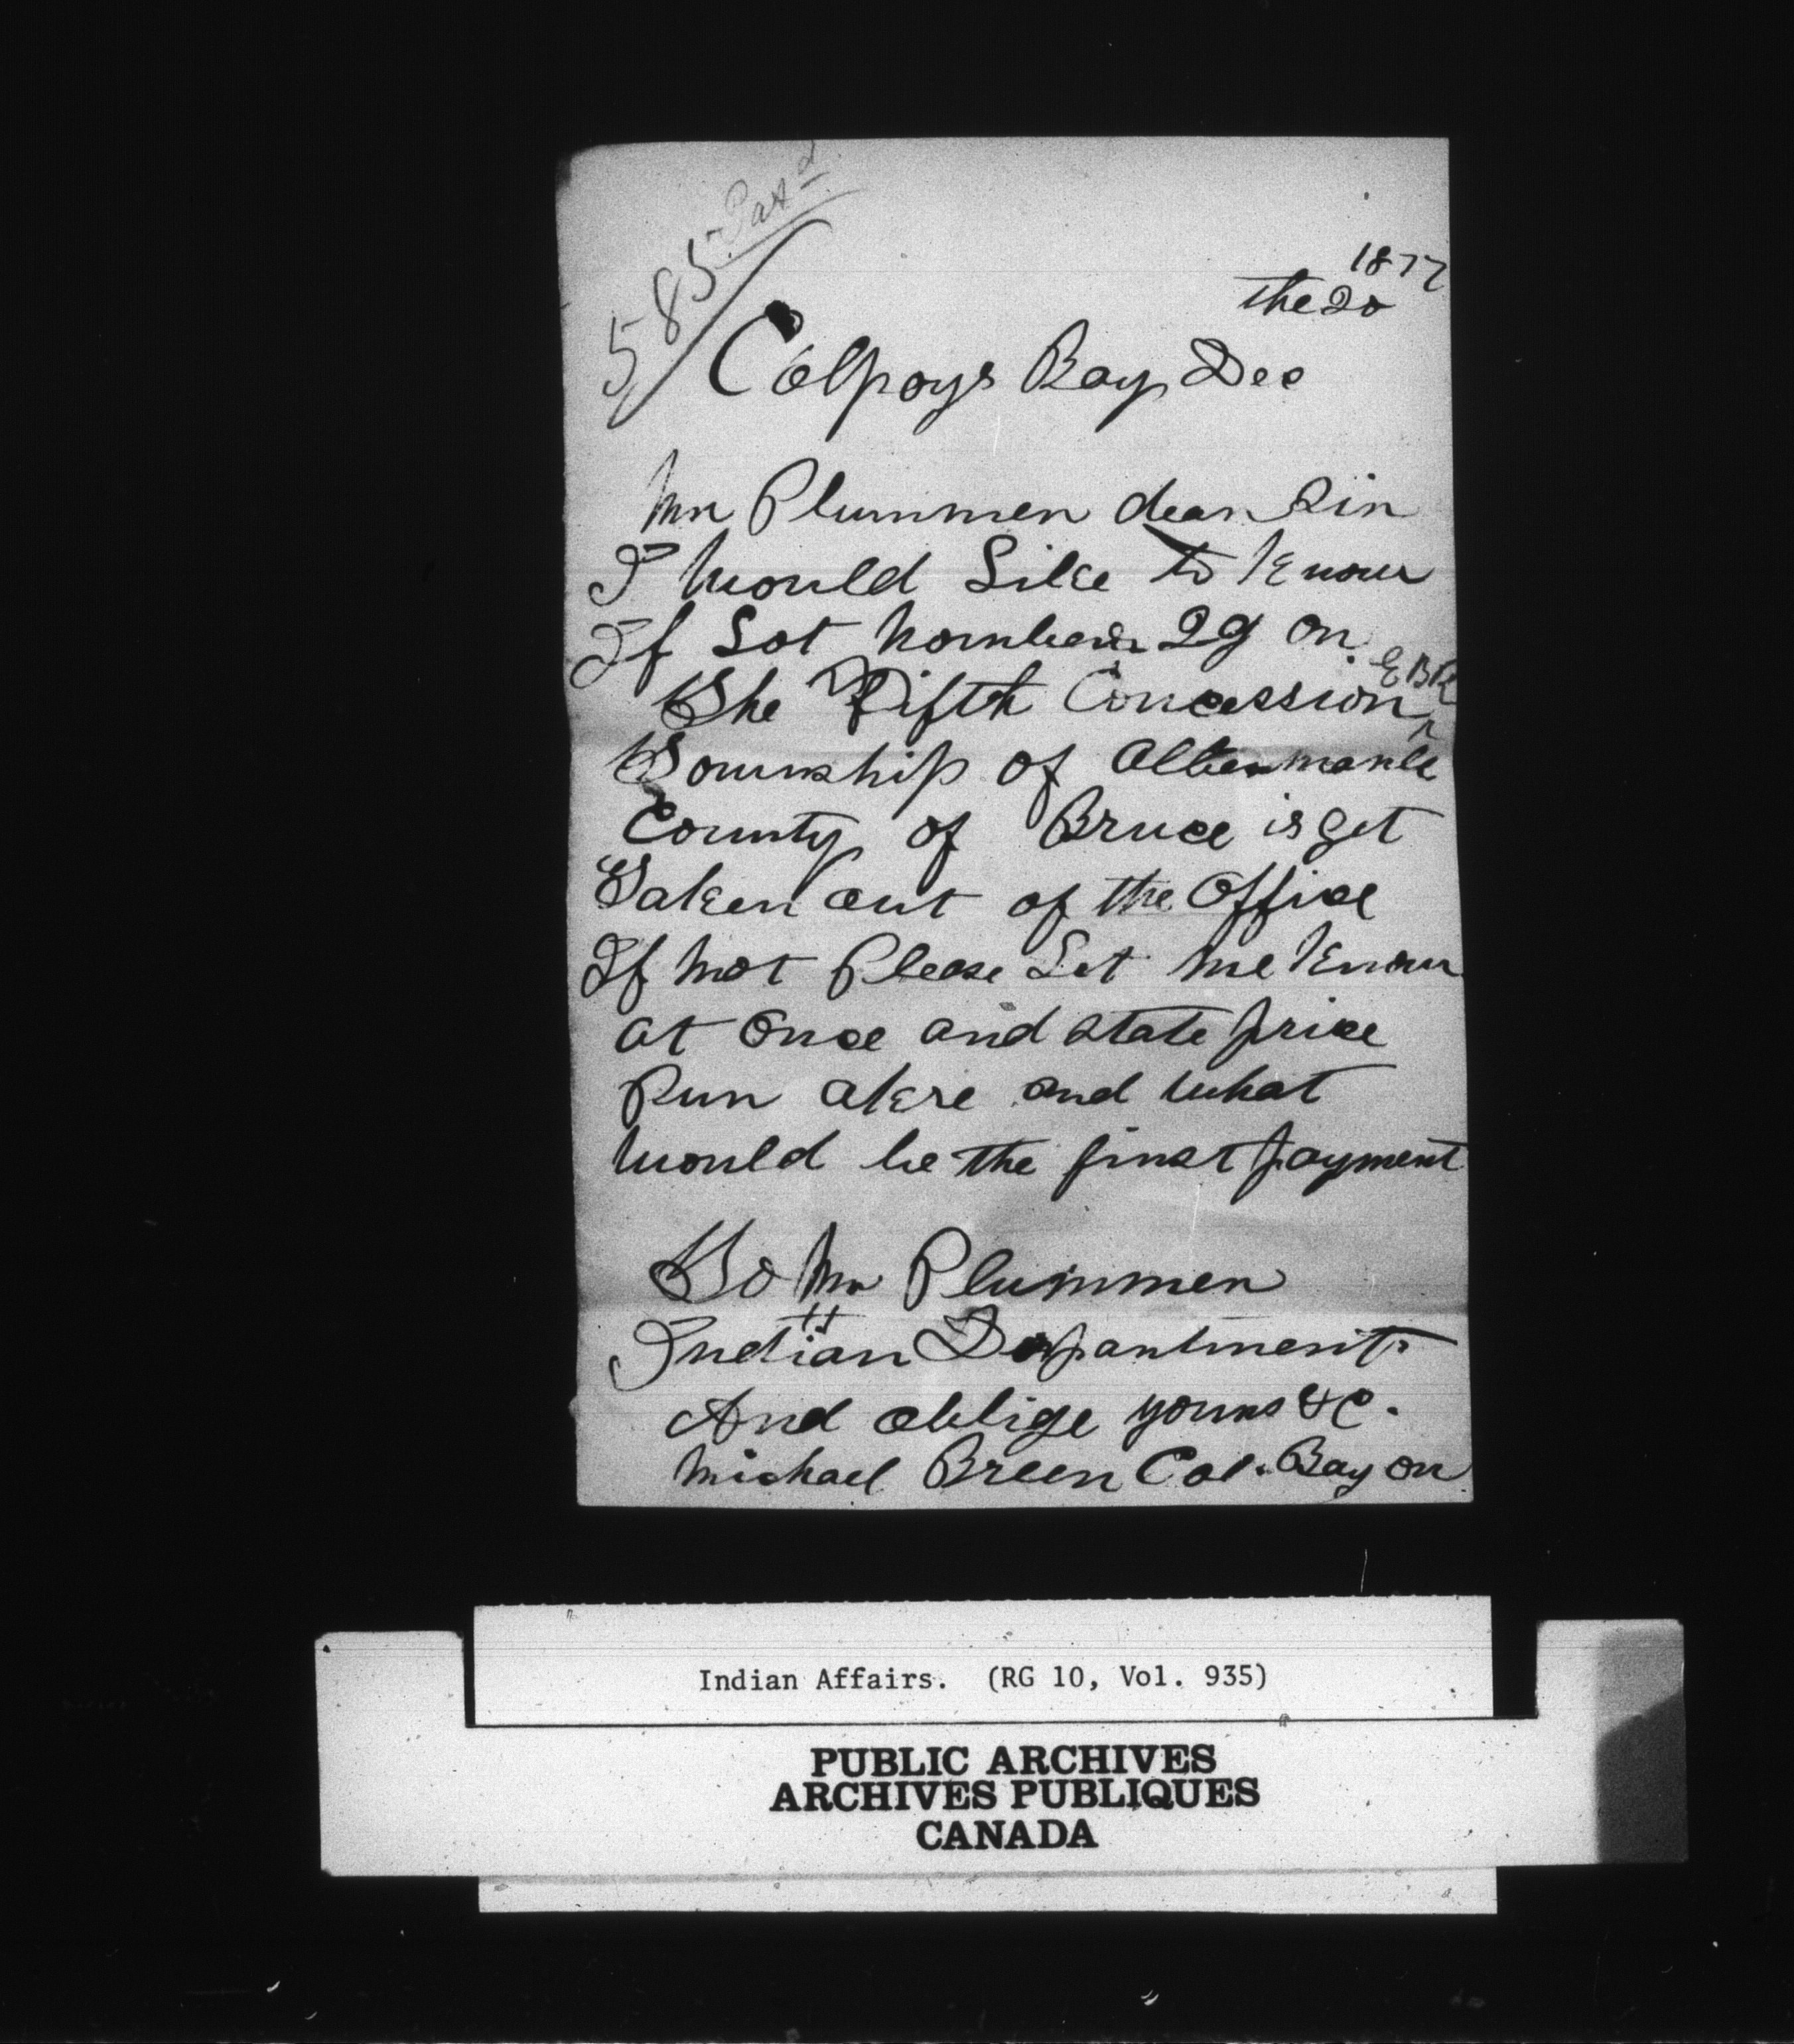 585
1877
the 20
Colpoys Bay Dec
Mr Plummer dear Sir
I would Like to Know
If Lot Nomber 29 on
The Fifth Concession E B R
Township of Albermarle
County of Bruce is yet
Taken out of the Office
If not Please Let me Know
at Once and state price
Pur akre and what
would be the first payment
To Mr Plummer
Indian Department
And oblige yours &c.
Michael Breen Col. Bay On
Indian Affairs. (RG 10, Vol. 935)
PUBLIC ARCHIVES
ARCHIVES PUBLIQUES
CANADA